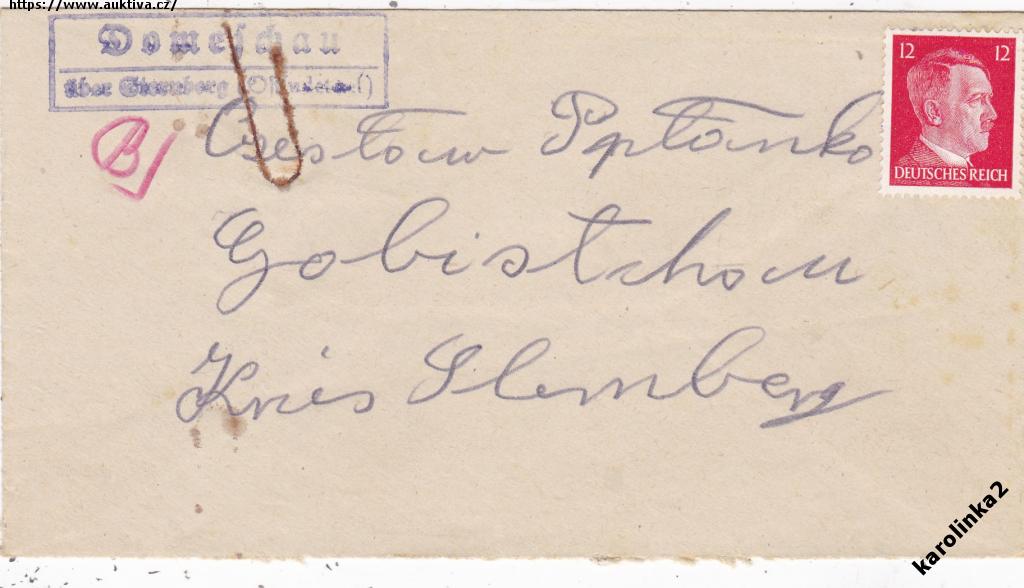 https://www.auktiva.cz/
Domeschau
über Sternberg (Ostsudetenl)
12 12
DEUTSCHES REICH
B
Czestaw
Gobistchau
Kries Sternberg
karolinka2